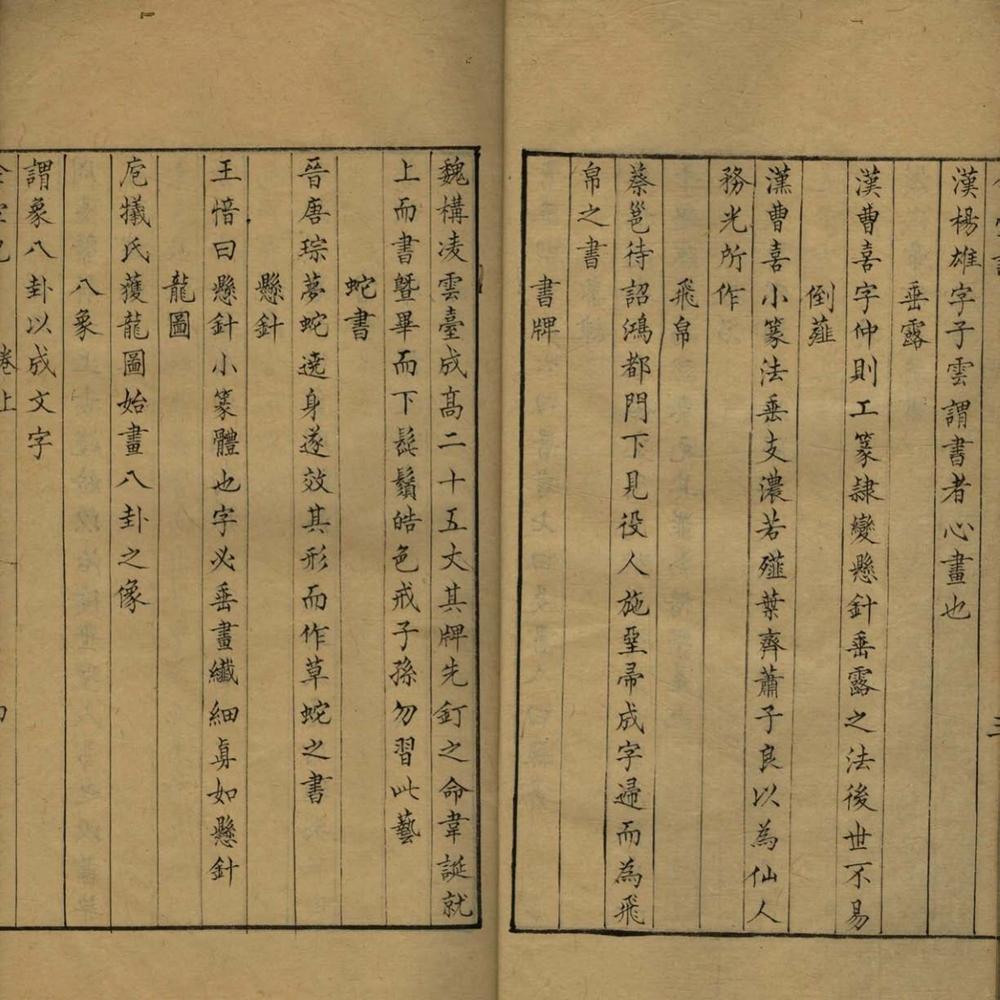 漢楊雄字子雲謂書者心畫也
垂露
漢曹喜字仲則工篆隸變懸針垂露之法後世不易
倒薤
漢曹喜小篆法垂支濃若薤葉齊蕭子良以為仙人
務光所作
飛帛
蔡邕待詔鴻都門下見役人施堊帚成字歸而為飛
帛之書
書牌
魏構凌雲臺成高二十五丈其牌先釘之命韋誕就
上而書暨畢而下髭鬚皓色戒子孫勿習此藝
蛇書
晉唐琮夢蛇遶身遂效其形而作草蛇之書
懸針
王愔曰懸針小篆體也字必垂畫纖細真如懸針
龍圖
庖犧氏獲龍圖始畫八卦之像
八象
謂象八卦以成文字
卷上